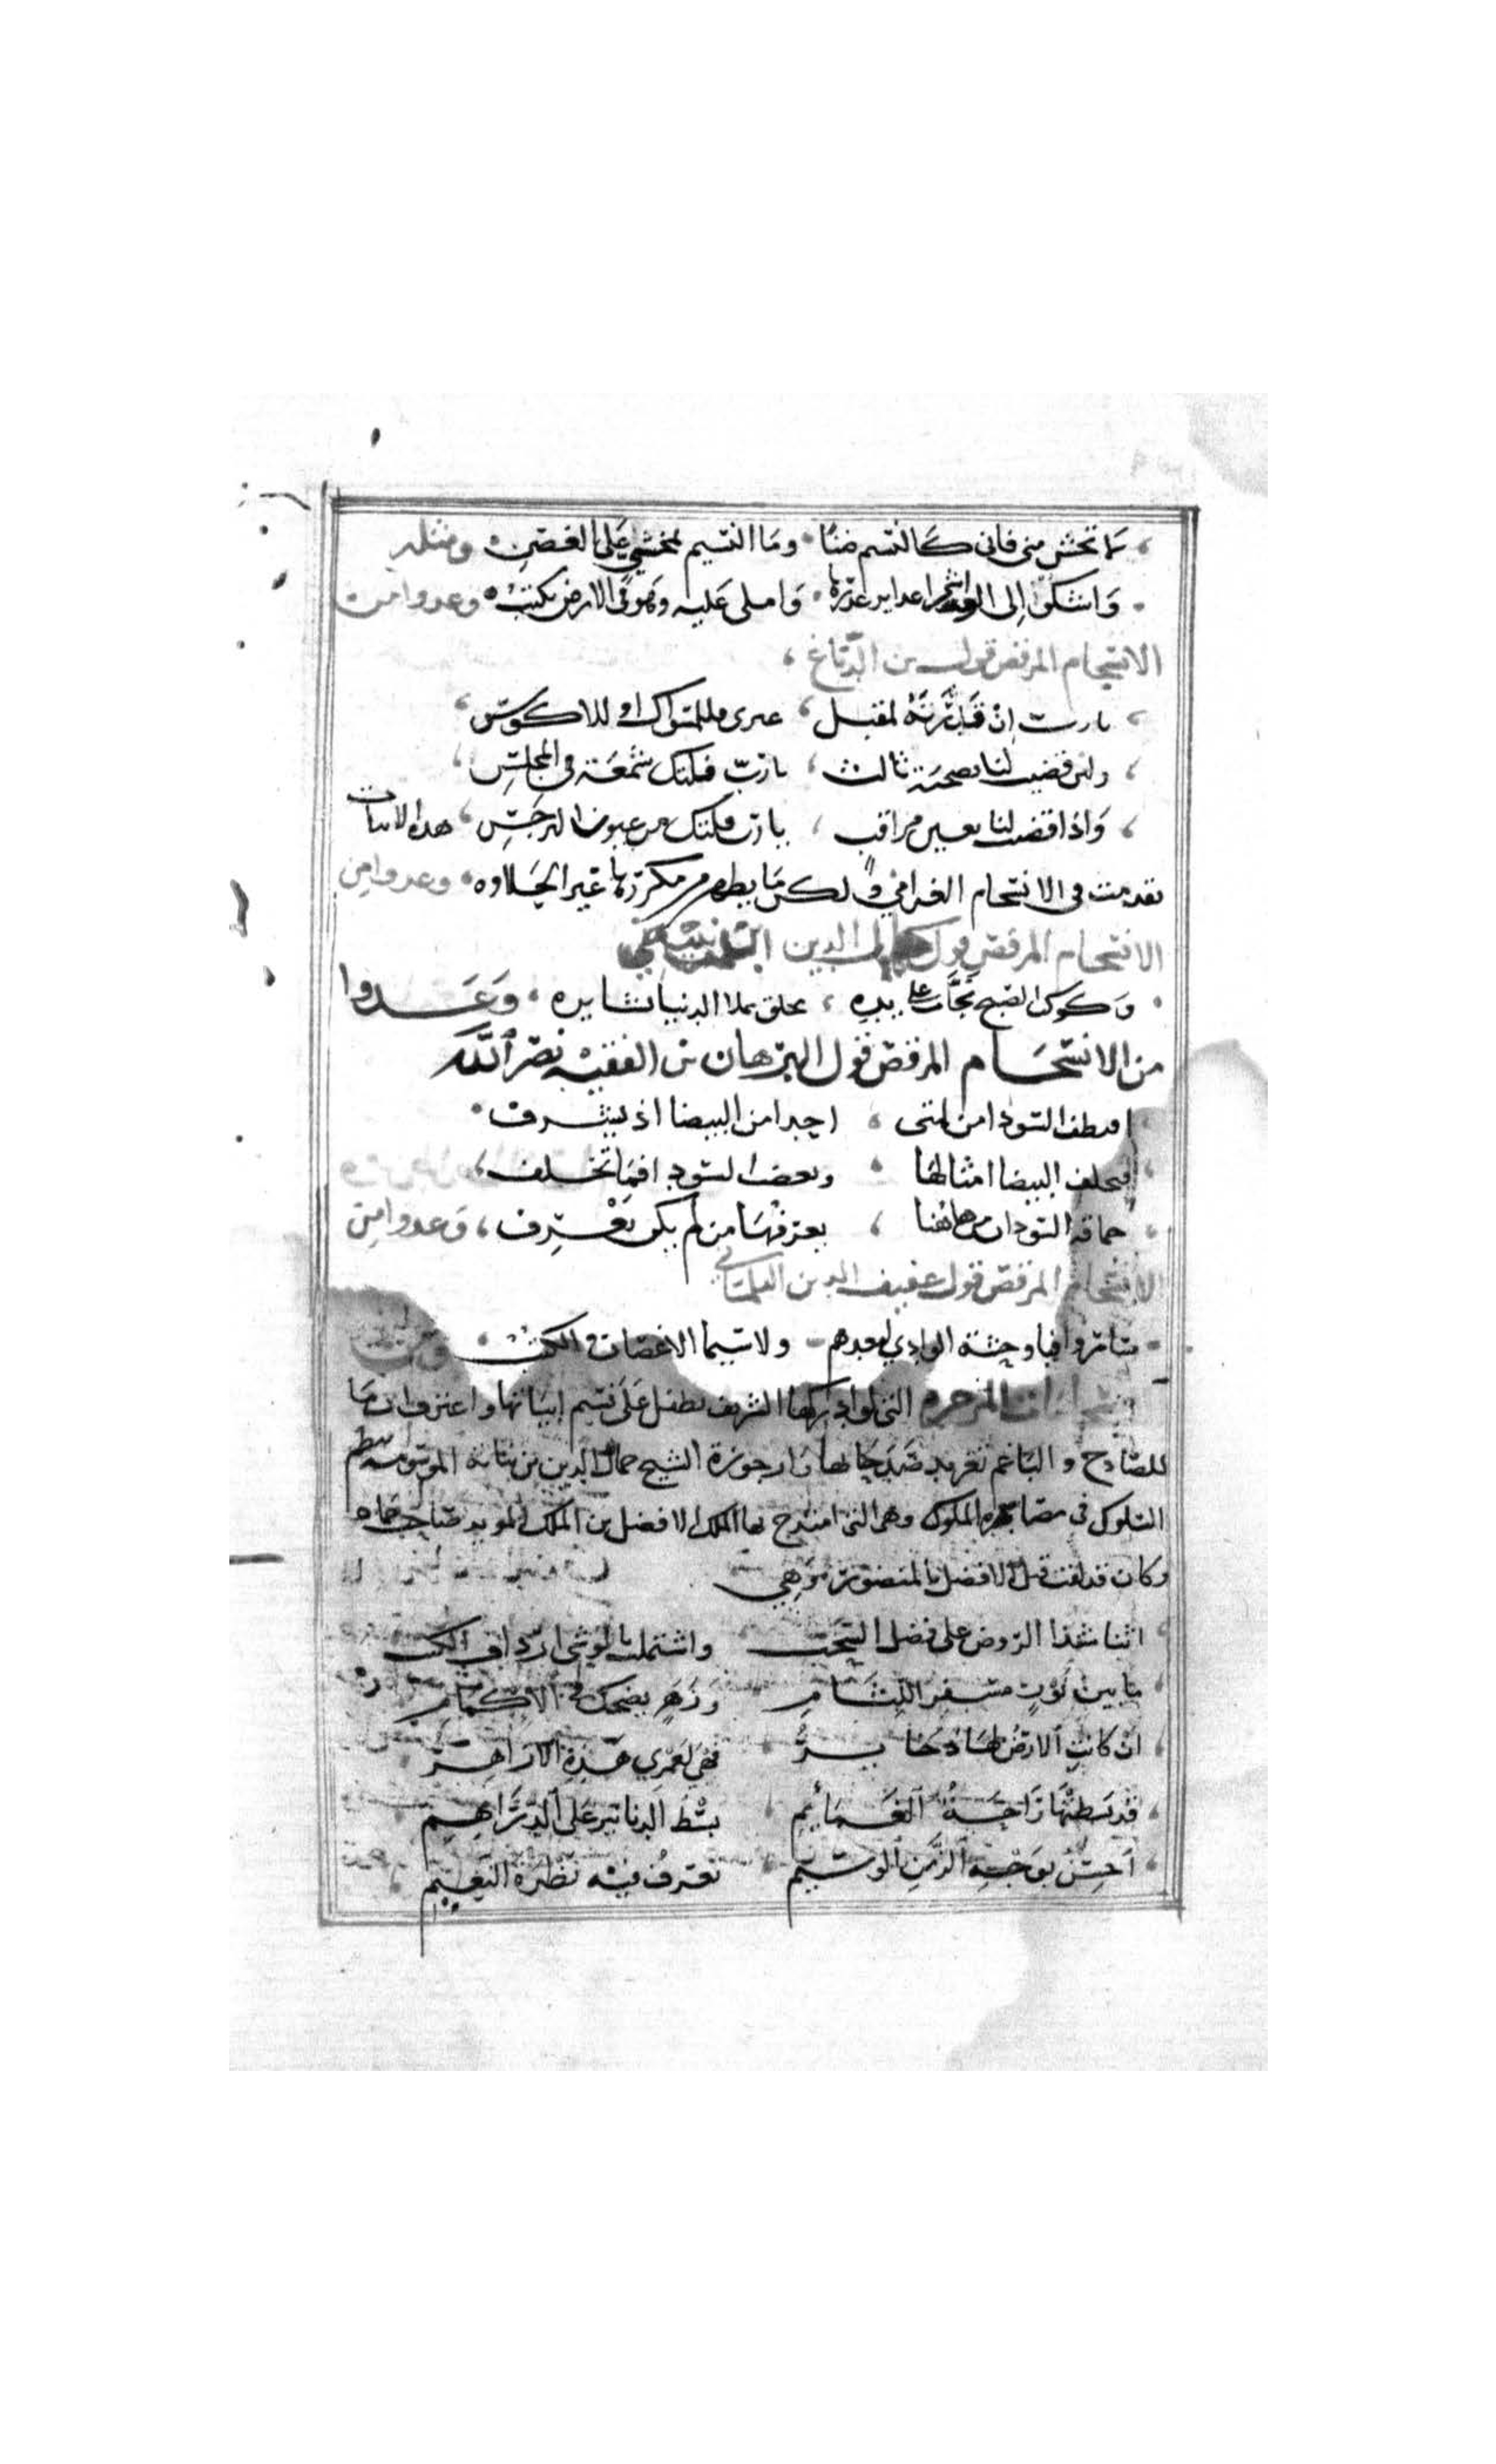 لا تخش مني فاني كالنسيم ضنا وما النسيم بمخشي على الغصن ومثله
واشكوا إلى واملي عليه وهو في الارض يكتب وعدوا من
الانسجام المرقص قول بن الدباغ
يارب ان قدرته لمقبل غيري فللمسواك او للاكوس
ولئن قضيت لنا بصحبة ثالث يارب فليك شمعة في المجلس
واذا قضيت لنا بعين مراقب يارب فليك من عيون النرجس هذه الابيات
تقدمت في الانسجام الغرامي ولكن ما يظهر من مكررها غير الحلاوه وعدوا من
الانسجام المرقص قول الدين
وكوكب الصبح نجاب على يده مخلق تملا الدنيا بشايره وعدوا
من الانسجام المرقص قول البرهان بن الفقيه نصر الله
اقطف السودا من لمتي احيدا من البيضا اذ تشرف
فتخلف البيضا امثالها وبعض السودا فما تخلف
حماقة السودان من هاهنا يعرفها من لم يكن يعرف وعدوا من
الانسجام المرقص قول عفيف الدين التلمساني
وحشة الوادي لبعدهم ولا سيما الاغصان والكثب
التي لو ادركها الشريف تطفل على نسيم ابياتها واعترف ان ما
للصادح والباغم تغريد صدحاتها ارجوزة الشيخ جمال الدين بن نباتة الموسومة بنظم
السلوك في مصايد الملوك وهي التي امتدح بها الملك الافضل بن الملك المويد صاحب حماه
وكان قد لقب قبل الافضل بالمنصور وهي
اثنا شذا الروض على فضل السحب واشتملت بالوشي ارداف الكثب
ما بين نور مسفر اللثام وزهر يضحك في الاكمام
ان كانت الارض لها ذخاير فهي لعمري هذه الازاهر
قد بسطتها راحة الغمايم بسط الدنانير على الدراهم
احسن بوجه الزمن الوسيم تعرف فيه نضرة النعيم